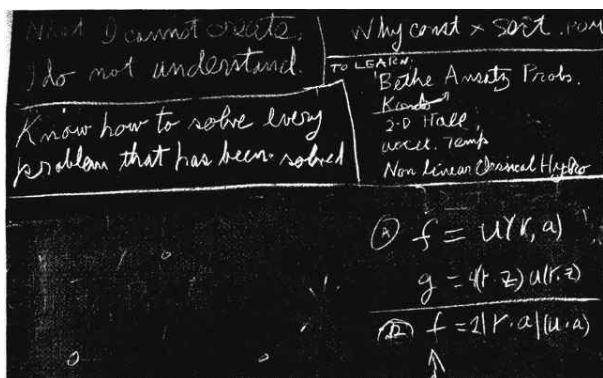 What I cannot create,
I do not understand.
Know how to solve every
problem that has been solved
Why const × sort .
TO LEARN:
Bethe Ansatz Probs.
Kondo
2-D Hall
accel. Temp
Non Linear Classical Hydro
Ⓐ f = u(r, a)
g = 4(r·z) u(r, z)
f = 2|r·a|(u·a)